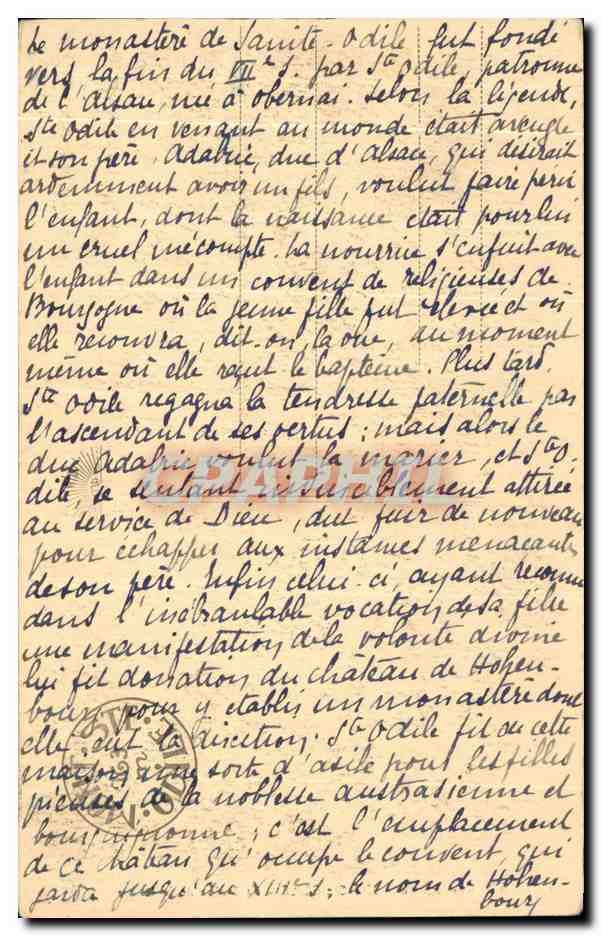 Le monastère de Sainte-Odile fut fondé
vers la fin du VIIe s. par Ste Odile, patronne
de l'Alsace, née à Obernai. Selon la légende,
Ste Odile en venant au monde était aveugle
et son père Adalric, duc d'Alsace, qui désirait
ardemment avoir un fils, voulut faire périr
l'enfant, dont la naissance était pour lui
un cruel mécompte. La nourrice s'enfuit avec
l'enfant dans un couvent de religieuses de
Bourgogne où la jeune fille fut élevée et où
elle recouvra, dit-on, la vue, au moment
même où elle reçut le baptême. Plus tard,
Ste Odile regagna la tendresse paternelle par
l'ascendant de ses vertus ; mais alors le
duc Adalric voulut la marier, et Ste O-
dile, se sentant irrésistiblement attirée
au service de Dieu, dut fuir de nouveau
pour échapper aux instances menaçantes
de son père. Enfin celui-ci, ayant reconnu
dans l'inébranlable vocation de sa fille
une manifestation de la volonté divine
lui fit donation du château de Hohen-
bourg pour y établir un monastère dont
elle eut la direction. Ste Odile fit de cette
maison une sorte d'asile pour les filles
pieuses de la noblesse austrasienne et
bourguignonne ; c'est l'emplacement
de ce château qu'occupe le couvent, qui
garda jusqu'au XIIIe s. le nom de Hohen-
bourg
CPAPHIL